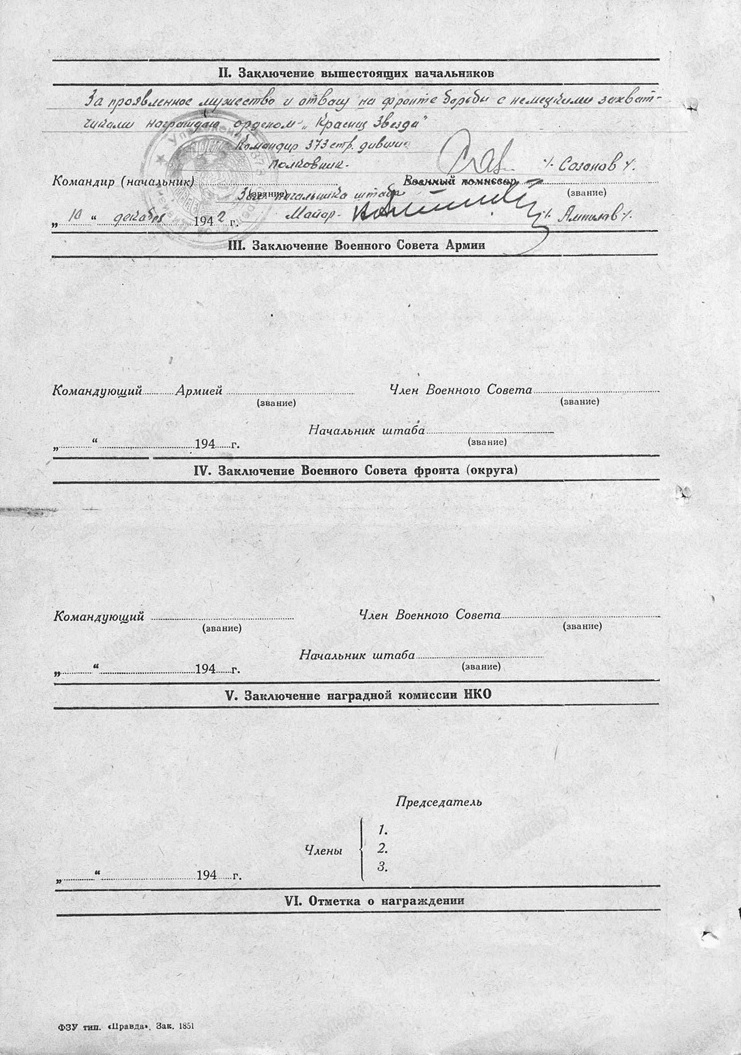 II. Заключение вышестоящих начальников
За проявленное мужество и отвагу на фронте борьбы с немецкими захват-
чиками награждаю орденом „Красная Звезда"
Командир 373 стр. дивизии
Полковник /Сазонов/.
Командир (начальник) Военный комиссар
(звание) (звание)
Зам. начальника штаба
„10“ декабря 1942 г. Майор
III. Заключение Военного Совета Армии
Командующий Армией Член Военного Совета
(звание) (звание)
Начальник штаба
„ “ 194 г. (звание)
IV. Заключение Военного Совета фронта (округа)
Командующий Член Военного Совета
(звание) (звание)
Начальник штаба
„ “ 194 г. (звание)
V. Заключение наградной комиссии НКО
Председатель
1.
Члены 2.
3.
„ “ 194 г.
VI. Отметка о награждении
ФЗУ тип. «Правда». Зак. 1851